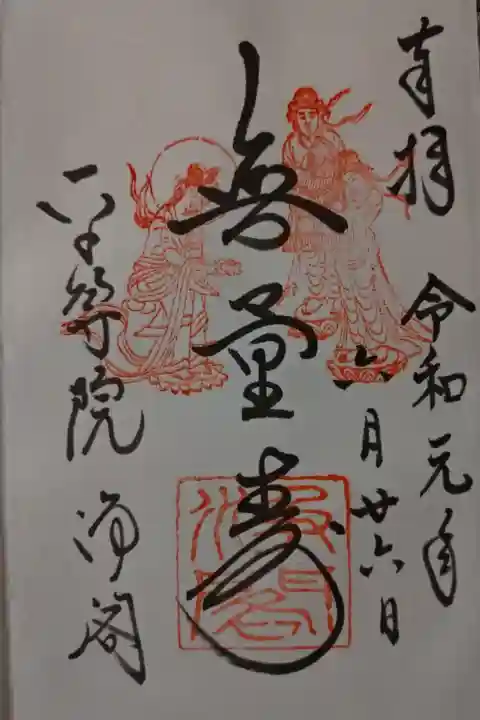 奉拝
令和元年
六月廿六日
無量寿
平等院 浄閣